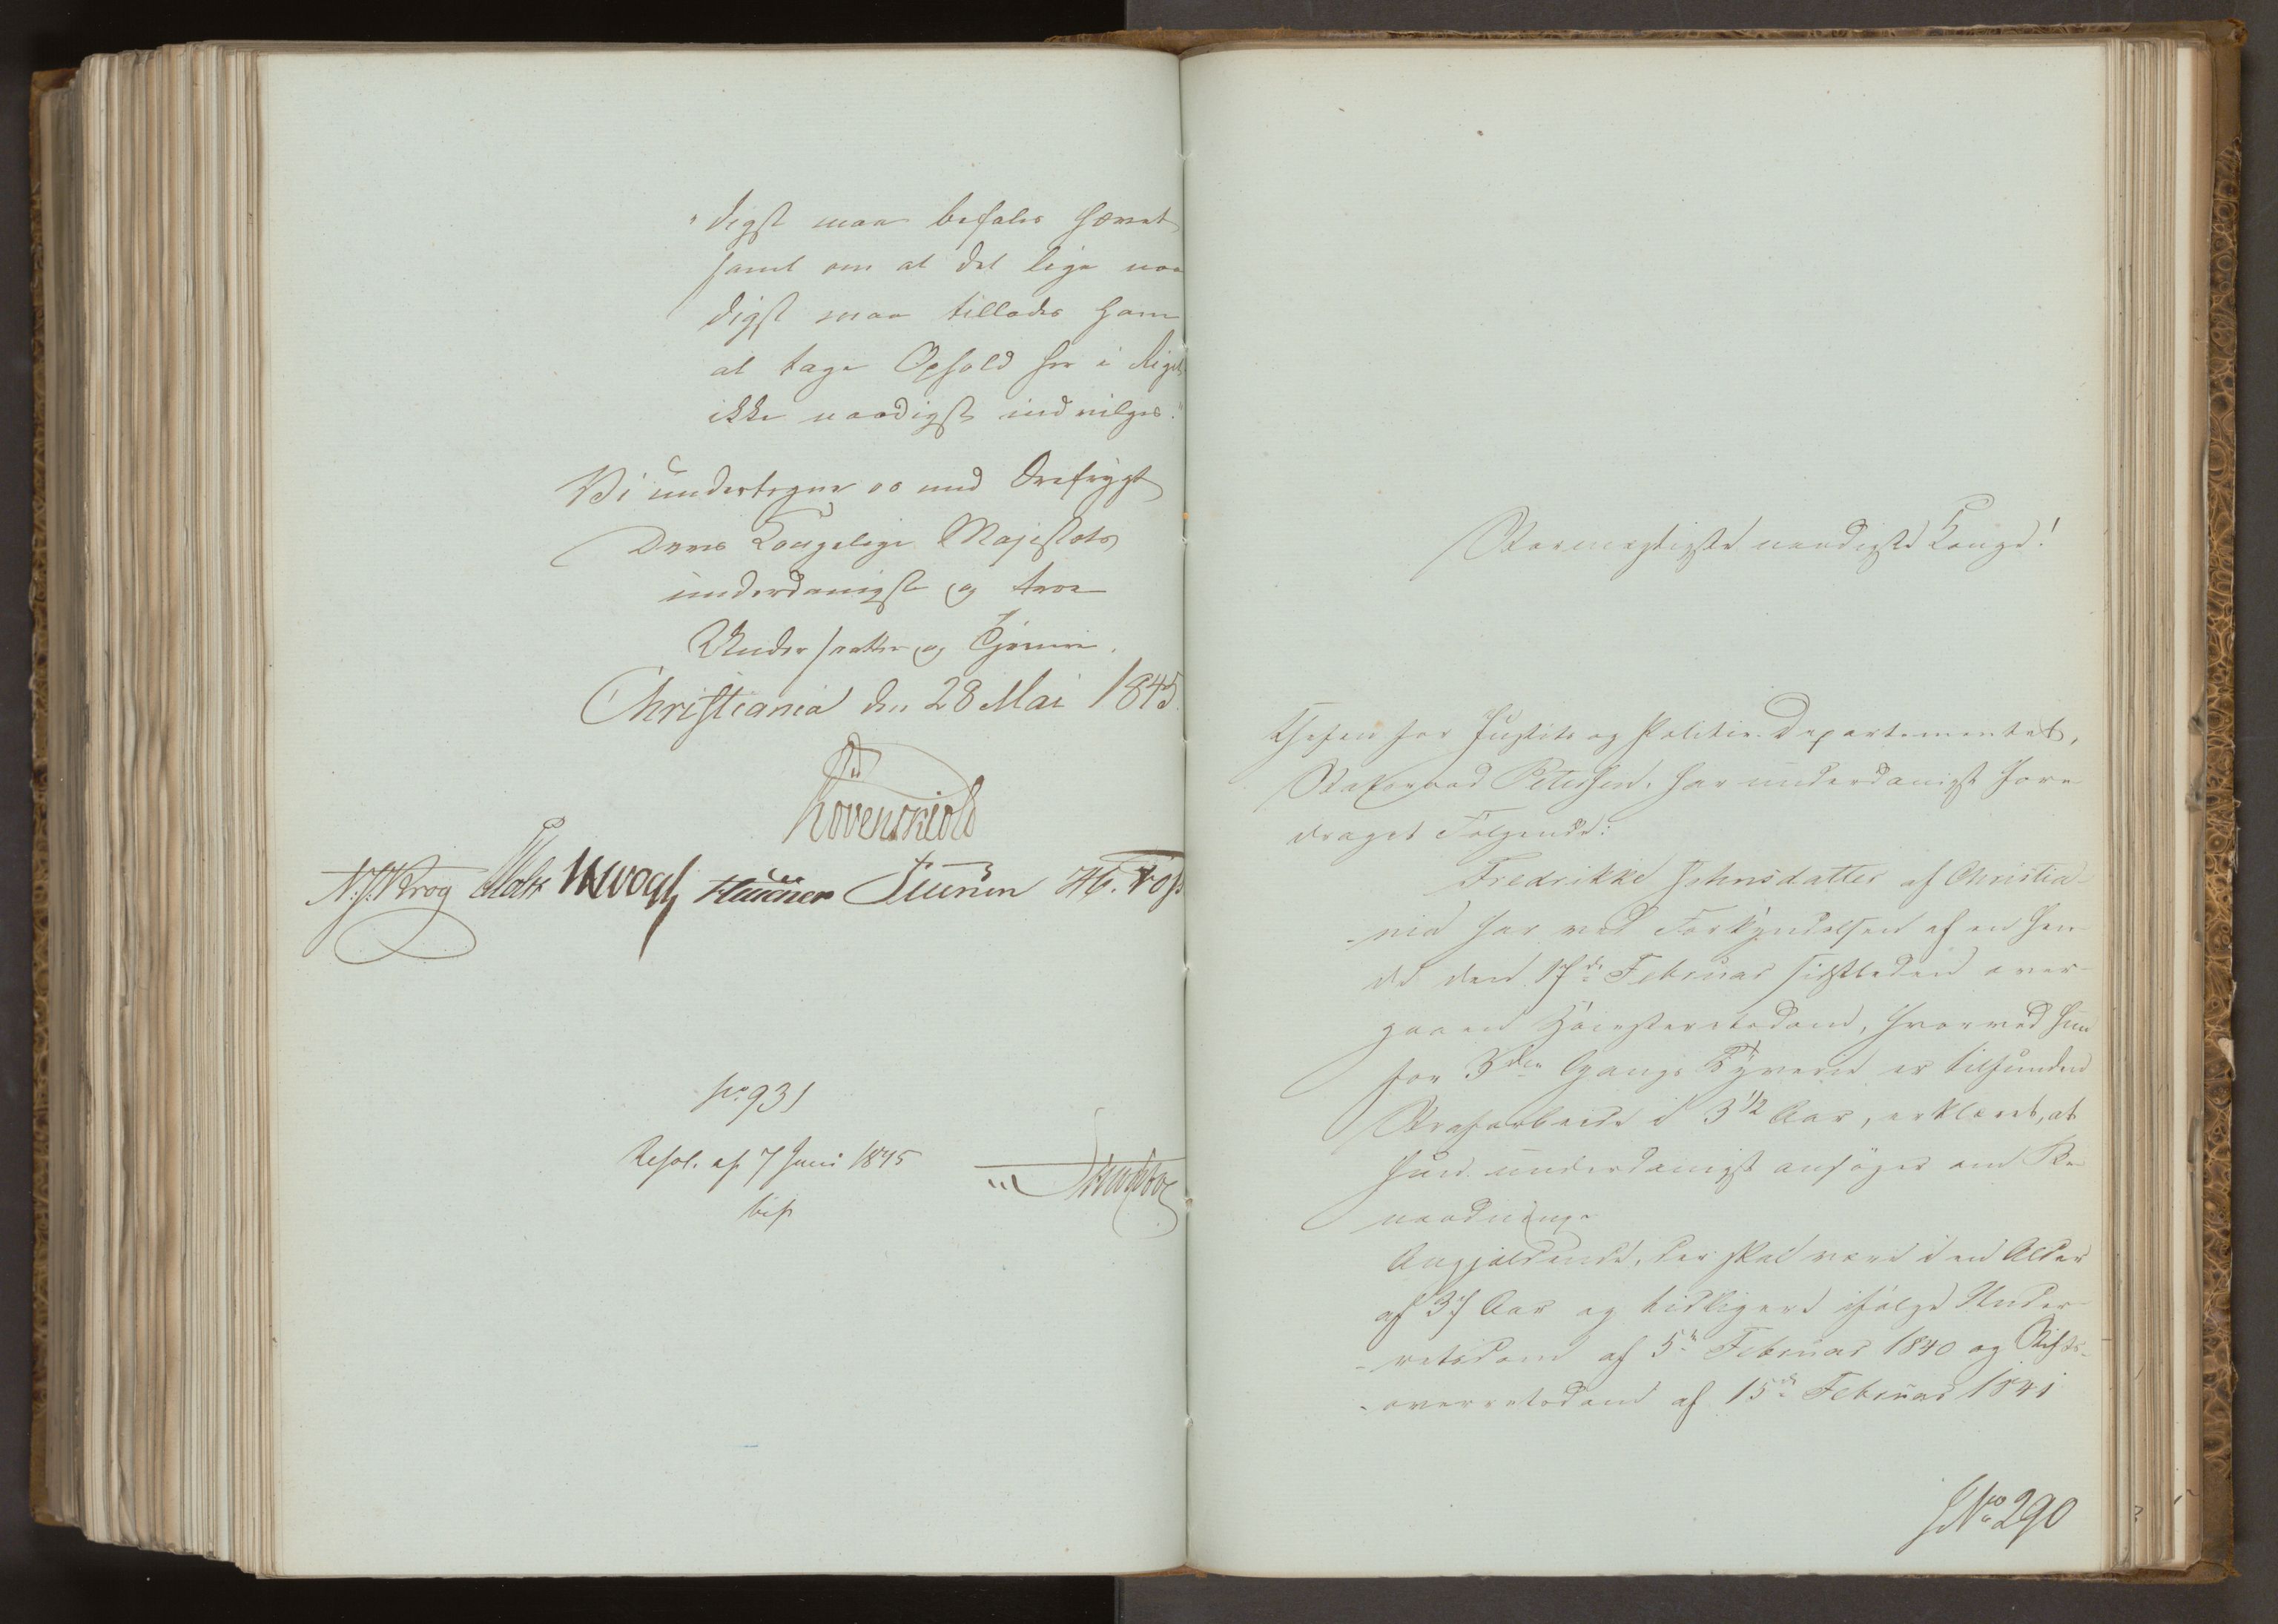 "digst maa befales hævet
samt om at det lige naa
digst maa tillades ham
at tage Ophold her i Riget
ikke naadigst indvilges."
Vi undertegne os med Ærefrygt
Deres Kongelige Majestæts
underdanigste og troe
Undersaatter og Tjenere.
Christiania den 28 Mai 1845.
Lövenskiold
N. J. Krog Motz Vogt
No. 931
Resol. af 7 Juni 1845
bif
Stormægtigste naadigste Konge!
Chefen for Justits og Politie-Departementet,
Statsraad Petersen, har underdanigst fore
draget Følgende:
Fredrikke Johnsdatter af Christia-
-nia har ved Forkyndelsen af en hen-
de den 17de Februar sidstleden over-
gaaen Høiesteretsdom, hvorved hun
for 3die Gangs Tyverie er tilfunden
Strafarbeide i 3 1/2 Aar, erklæret, at
hun underdanigst ansøger om Be-
naadning.
Angjældende, der skal være i en Alder
af 37 Aar og tidligere ifølge Under-
-retsdom af 5te Februar 1840 og Stifts-
-overretsdom af 15de Februar 1841
J No 290